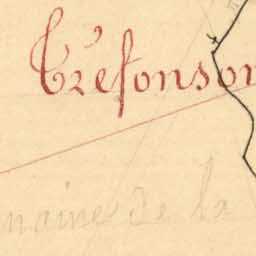 Tréfonson
maine de la